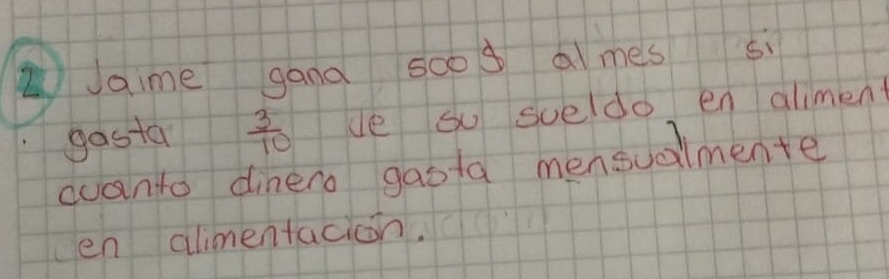 2 Jaime gana 500$ al mes si
gasta 3/10 de su sueldo en aliment
cuanto dinero gasta mensualmente
en alimentación.